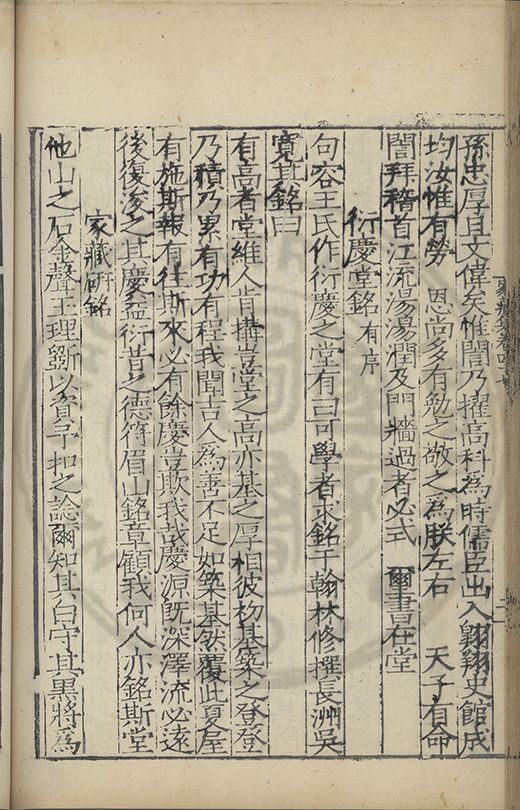 孫忠厚且文偉矣惟誾乃擢高科為時儒臣出入翱翔史館成
均汝惟有勞 恩尚多有勉之敬之為朕左右 天子有命
誾拜稽首江流湯湯潤及門牆過者必式 爾書在堂
衍慶堂銘有序
句容王氏作衍慶之堂有曰可學者求銘于翰林修撰長洲吳
寬其銘曰
有高者堂維人肯搆豈堂之高亦基之厚相彼枌基築之登登
乃積乃累有功有程我聞吉人為善不足如築基然覆此夏屋
有施斯報有往斯來必有餘慶豈欺我哉慶源旣深澤流必遠
後復浚之其慶益衍昔之德符眉山銘章顧我何人亦銘斯堂
家藏硏銘
他山之石金聲玉理斵以資予扣之諗爾知其白守其黑將為